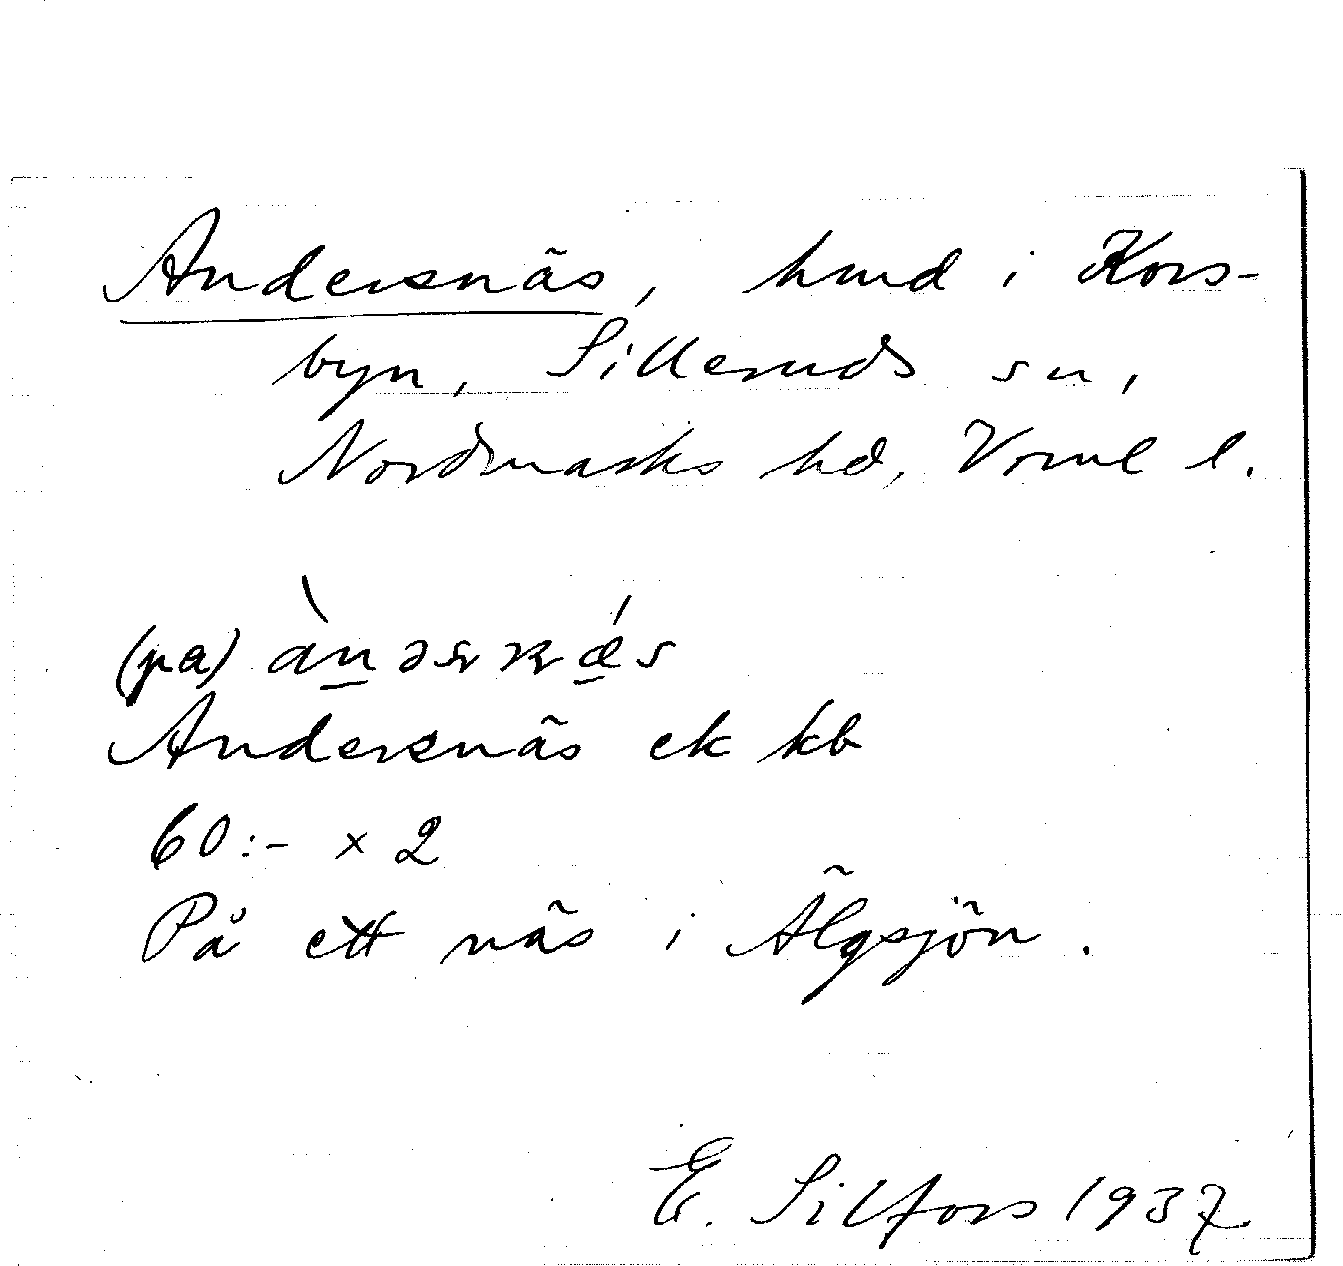 Andersnäs, hmd i Kors-
byn, Silleruds sn,
Nordmarks hd, Vrml l.
(pa) àn̠əʂɳǽ̠s
Andersnäs ek kb
60:- × 2
På ett näs i Älgsjön.
E. Silfors 1937